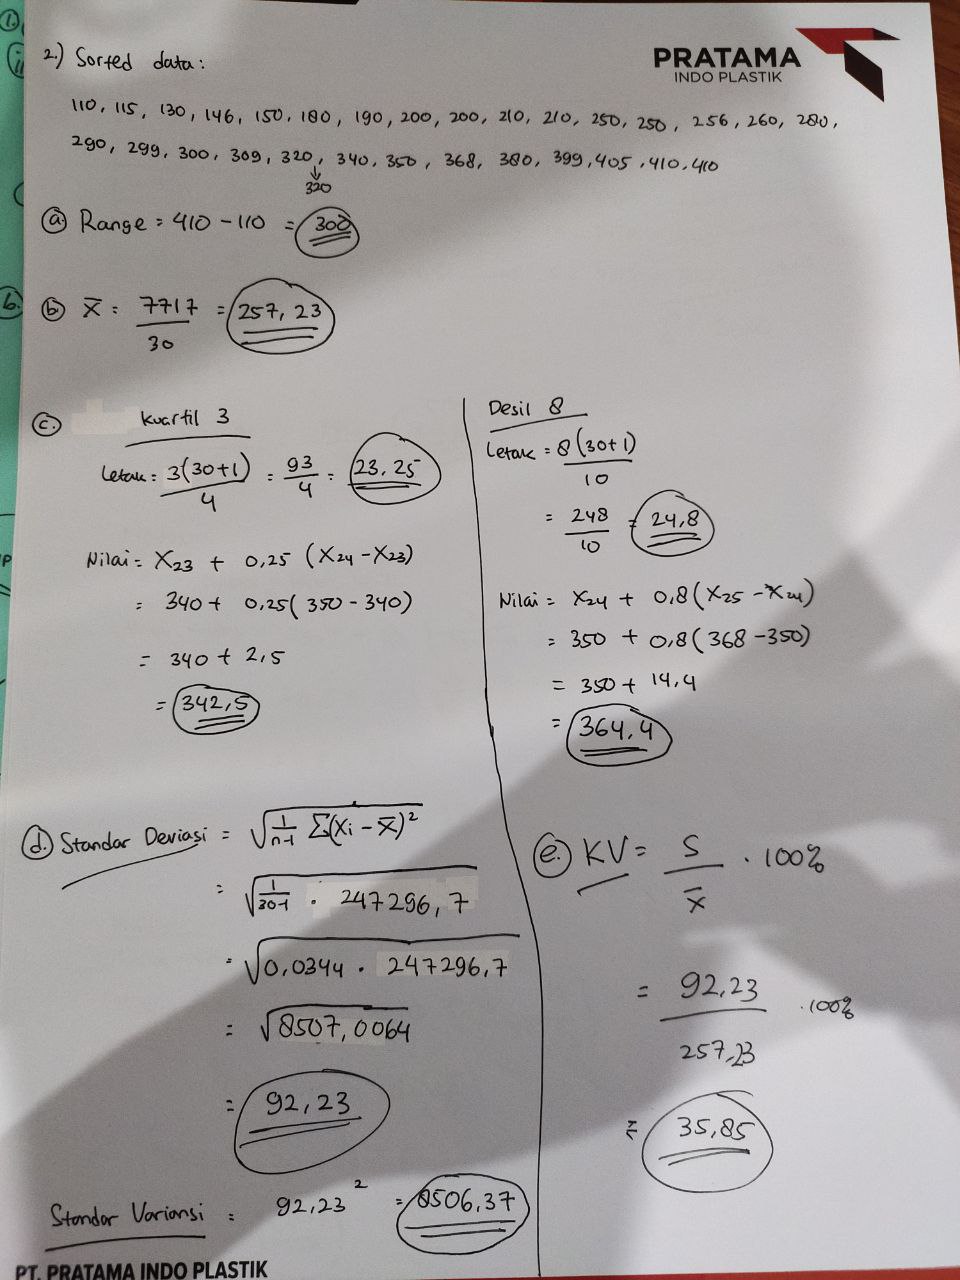 PRATAMA
INDO PLASTIK
2.) Sorted data:
110, 115, 130, 146, 150, 180, 190, 200, 200, 210, 210, 250, 250, 256, 260, 280,
290, 299, 300, 309, 320, 340, 350, 368, 380, 399, 405, 410, 410
↓
320
a. Range = 410 - 110 = 300
b. x̄ = 7717 / 30 = 257,23
c. Kuartil 3
Letak = 3(30+1) / 4 = 93 / 4 = 23.25
Nilai = X23 + 0,25 (X24 - X23)
= 340 + 0,25( 350 - 340)
= 340 + 2,5
= 342,5
Desil 8
Letak = 8(30+1) / 10
= 248 / 10 = 24,8
Nilai = X24 + 0,8(X25 - X24)
= 350 + 0,8( 368 - 350)
= 350 + 14,4
= 364,4
d. Standar Deviasi = √ 1/n-1 Σ(Xi - x̄)²
= √ 1/30-1 . 247296,7
= √0,0344 . 247296,7
= √8507,0064
= 92,23
Standar Variansi = 92,23² = 8506,37
e. KV = S / x̄ . 100%
= 92,23 / 257,23 .100%
= 35,85
PT. PRATAMA INDO PLASTIK